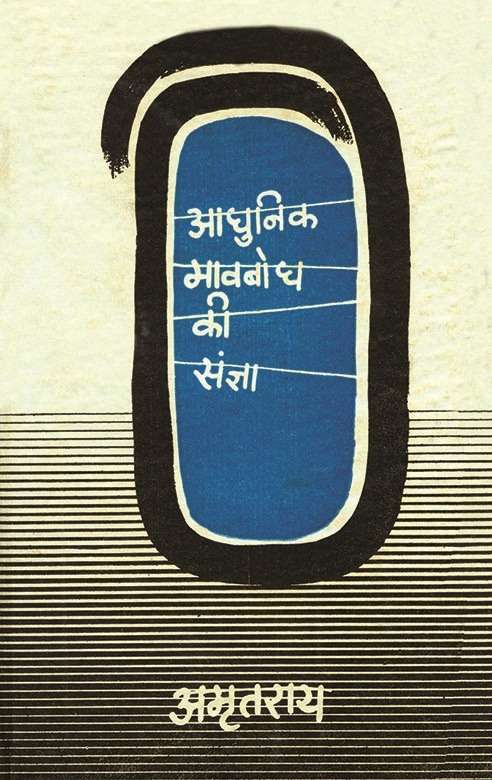 आधुनिक
भावबोध
की
संज्ञा
अमृतराय